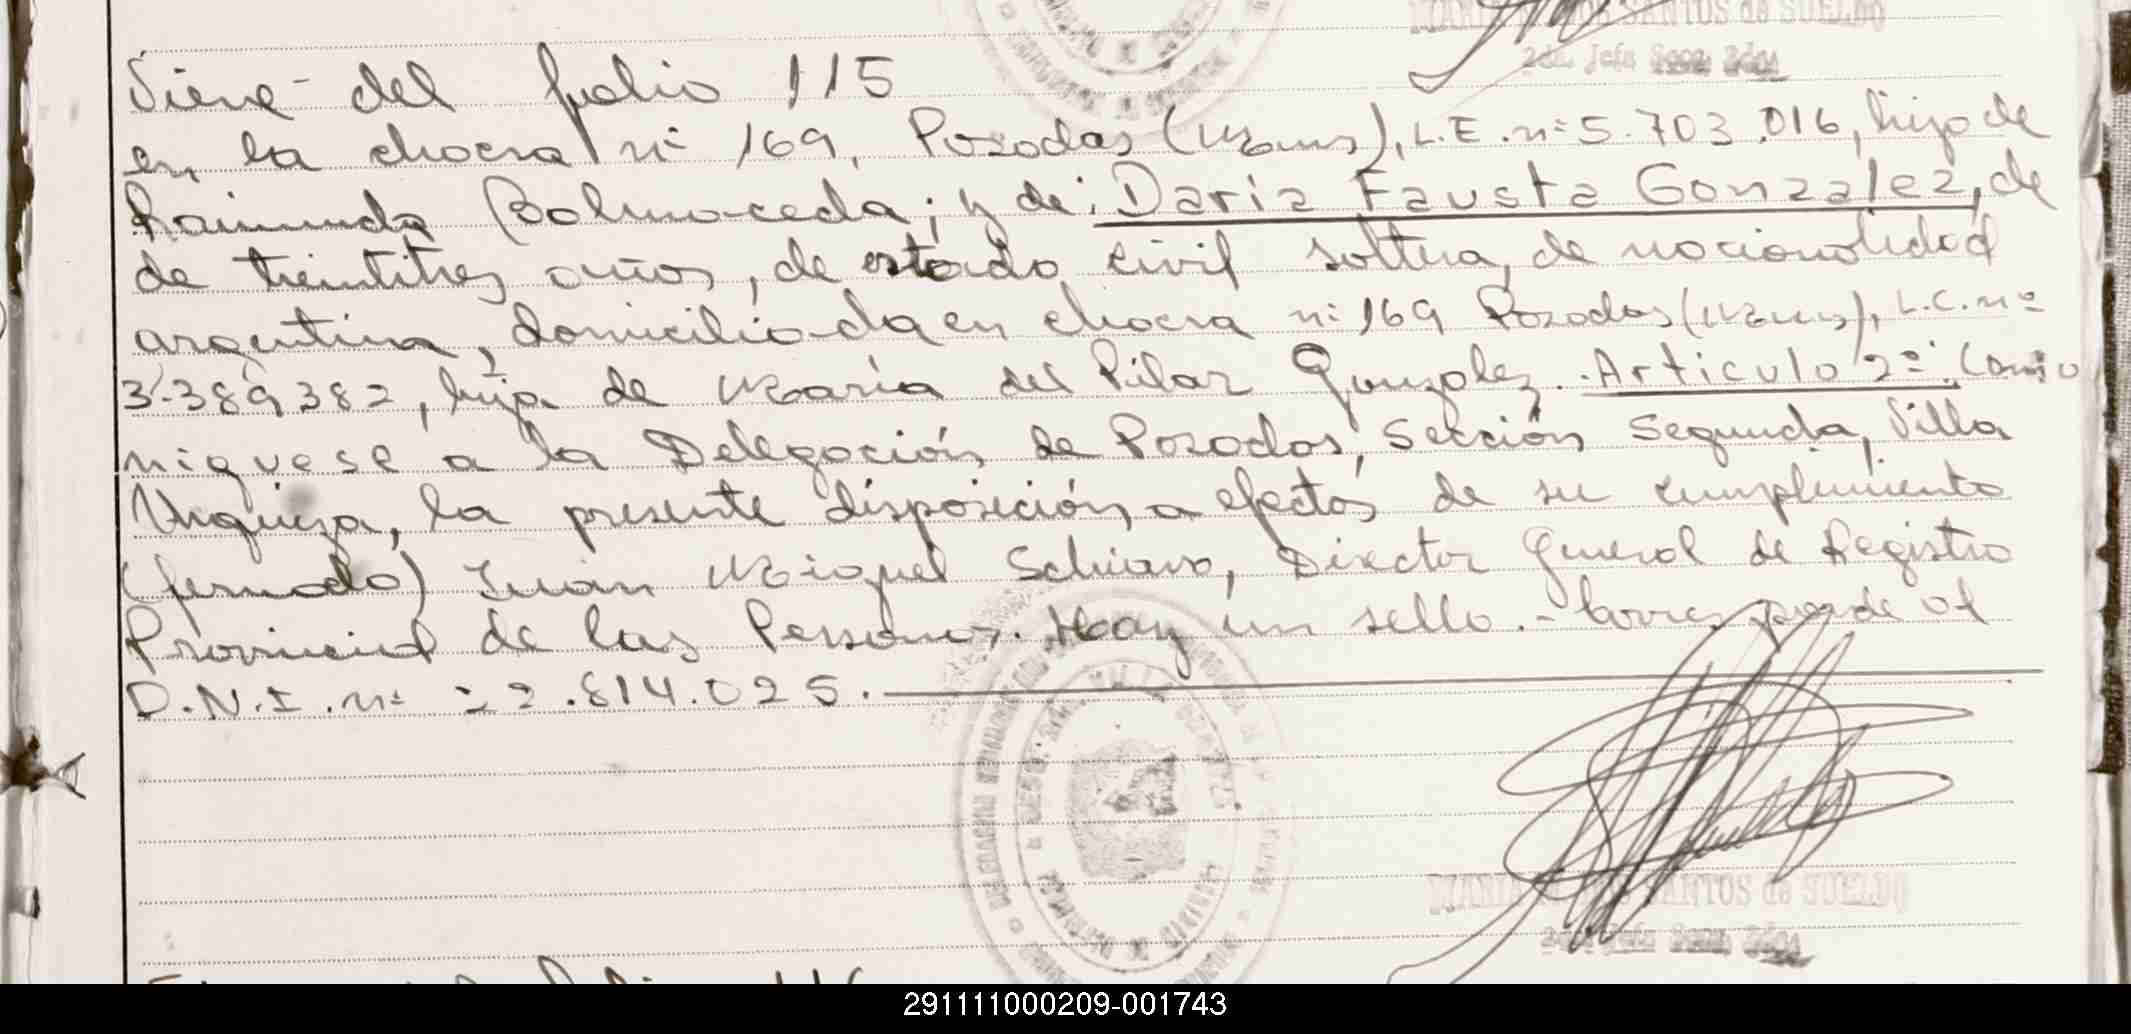 Viene del folio 115
en la chacra nº 169, Posadas (Mnes), L.E. nº 5.703.016, hijo de
Raimundo Balmaceda; y de: Daria Fausta Gonzalez, de
de treintitres años, de estado civil soltera, de nacionalidad
argentina, domiciliada en chacra nº 169 Posadas (Mnes), L.C. nº
3.389.382, hija de María del Pilar Gonzalez.- Articulo 2º: Comu
niquese a la Delegación de Posadas, Sección Segunda, Villa
Urquiza, la presente disposición a efectos de su cumplimiento
(firmado) Juan Miguel Schiavo, Director General de Registro
Provincial de las Personas. Hay un sello.- Corresponde al
D.N.I. nº 22.814.025.
SANTOS de SUELDO
2da. Jefa Secc. 2da.
MARIA SANTOS de SUELDO
2da Jefa Secc. 2da.
291111000209-001743